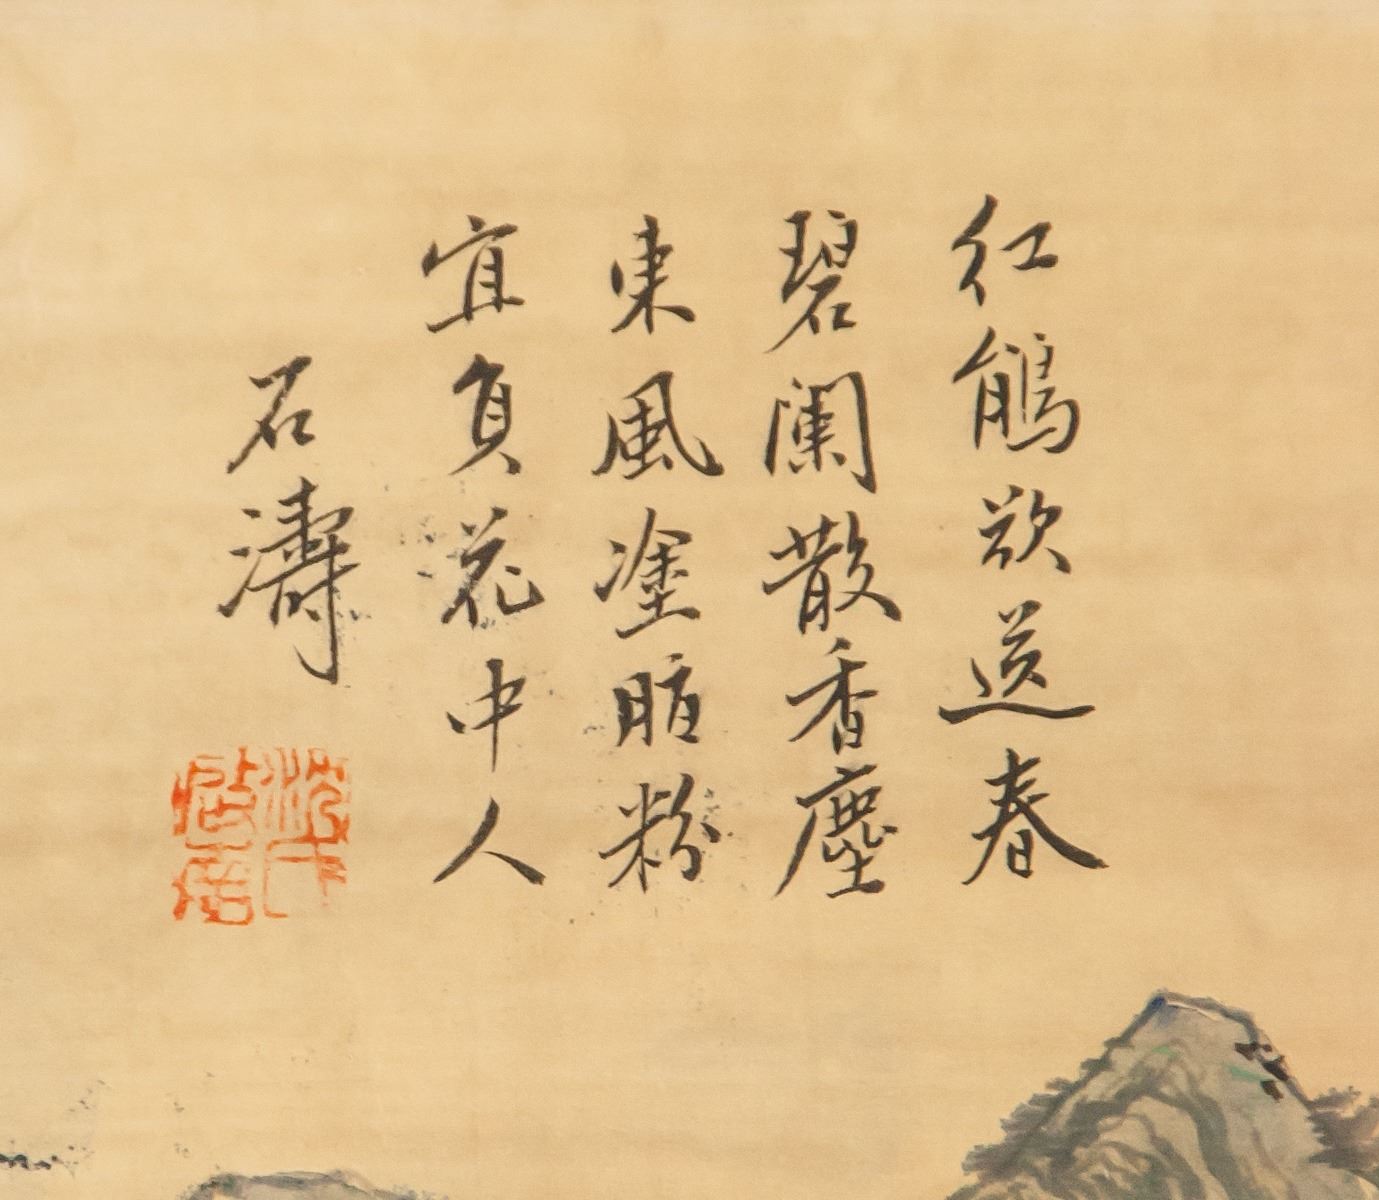 红鵑欲送春
碧闌散香塵
東風塗脂粉
宜負花中人
石濤